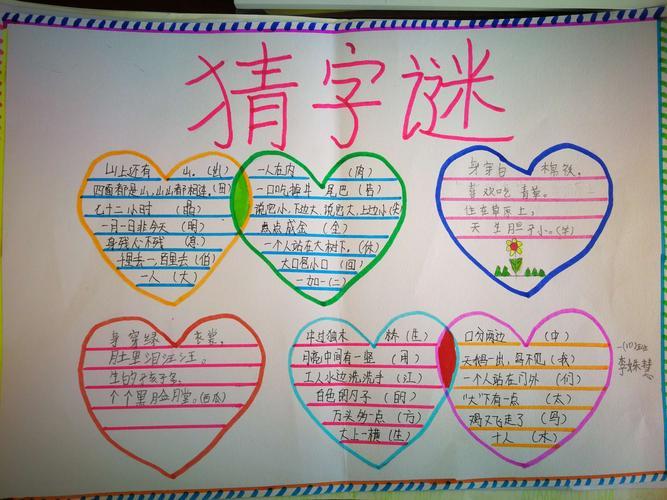 猜字谜
山上还有 山。(出)
四面都是山,山山都相连,(田)
七十二小时 (晶)
一月一日非今天 (明)
身残心不残 (息)
十里去一,百里去(伯)
一人 (大)
一人在内 (肉)
一口吃掉牛 尾巴 (告)
说它小,下边大,说它大,上边小(尖)
点点成金 (全)
一个人站在大树下,(休)
大口包小口 (回)
一加一(二)
身穿白 棉袄,
喜欢吃 青草。
住在草原上,
天 生 胆子小。(羊)
身 穿绿 衣裳,
肚里泪汪汪。
生的孩子多,
个个黑脸膛。(西瓜)
牛过独木 桥 (生)
月亮中间有一竖 (用)
工人水边洗洗手 (江)
白色的勺子 (的)
万头的一点 (方)
大上一横 (生)
口分两边 (中)
天鹅一出,鸟不见 (我)
一个人站在门外 (们)
"大"下有一点 (太)
鸿又飞走了 (鸟)
十人 (木)
一(10)班
李姝慧